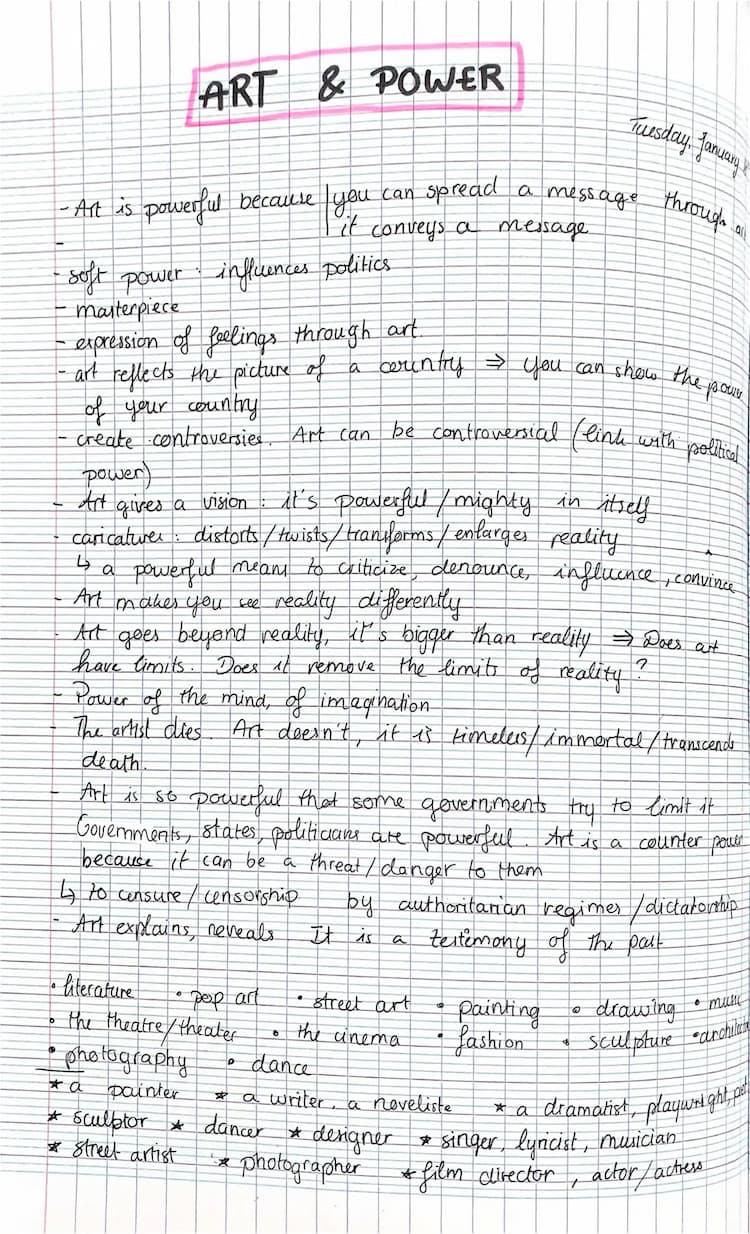 ART & POWER
Tuesday, January
- Art is powerful because | you can spread a message through
it conveys a message
-
- soft power : influences politics
- masterpiece
- expression of feelings through art.
- art reflects the picture of a country ⇒ you can show the
of your country
- create controversies. Art can be controversial (link with political
power)
- Art gives a vision : it's powerful/mighty in itself
- caricatures : distorts/twists/transforms/enlarges reality
↳ a powerful means to criticize, denounce, influence, convince
- Art makes you see reality differently
- Art goes beyond reality, it's bigger than reality ⇒ Does art
have limits. Does it remove the limits of reality ?
- Power of the mind, of imagination
- The artist dies. Art doesn't, it is timeless/immortal/transcends
death.
- Art is so powerful that some governments try to limit it
Governments, states, politicians are powerful. Art is a counter power
because it can be a threat/danger to them
↳ to censure/censorship by authoritarian regimes/dictatorship
- Art explains, reveals It is a testimony of the past
• literature • pop art • street art • painting • drawing • music
• the theatre/theater • the cinema • fashion • sculpture
• photography • dance
* a painter * a writer, a noveliste * a dramatist, playwright,
* sculptor * dancer * designer * singer, lyricist, musician
* street artist * photographer * film director, actor/actress